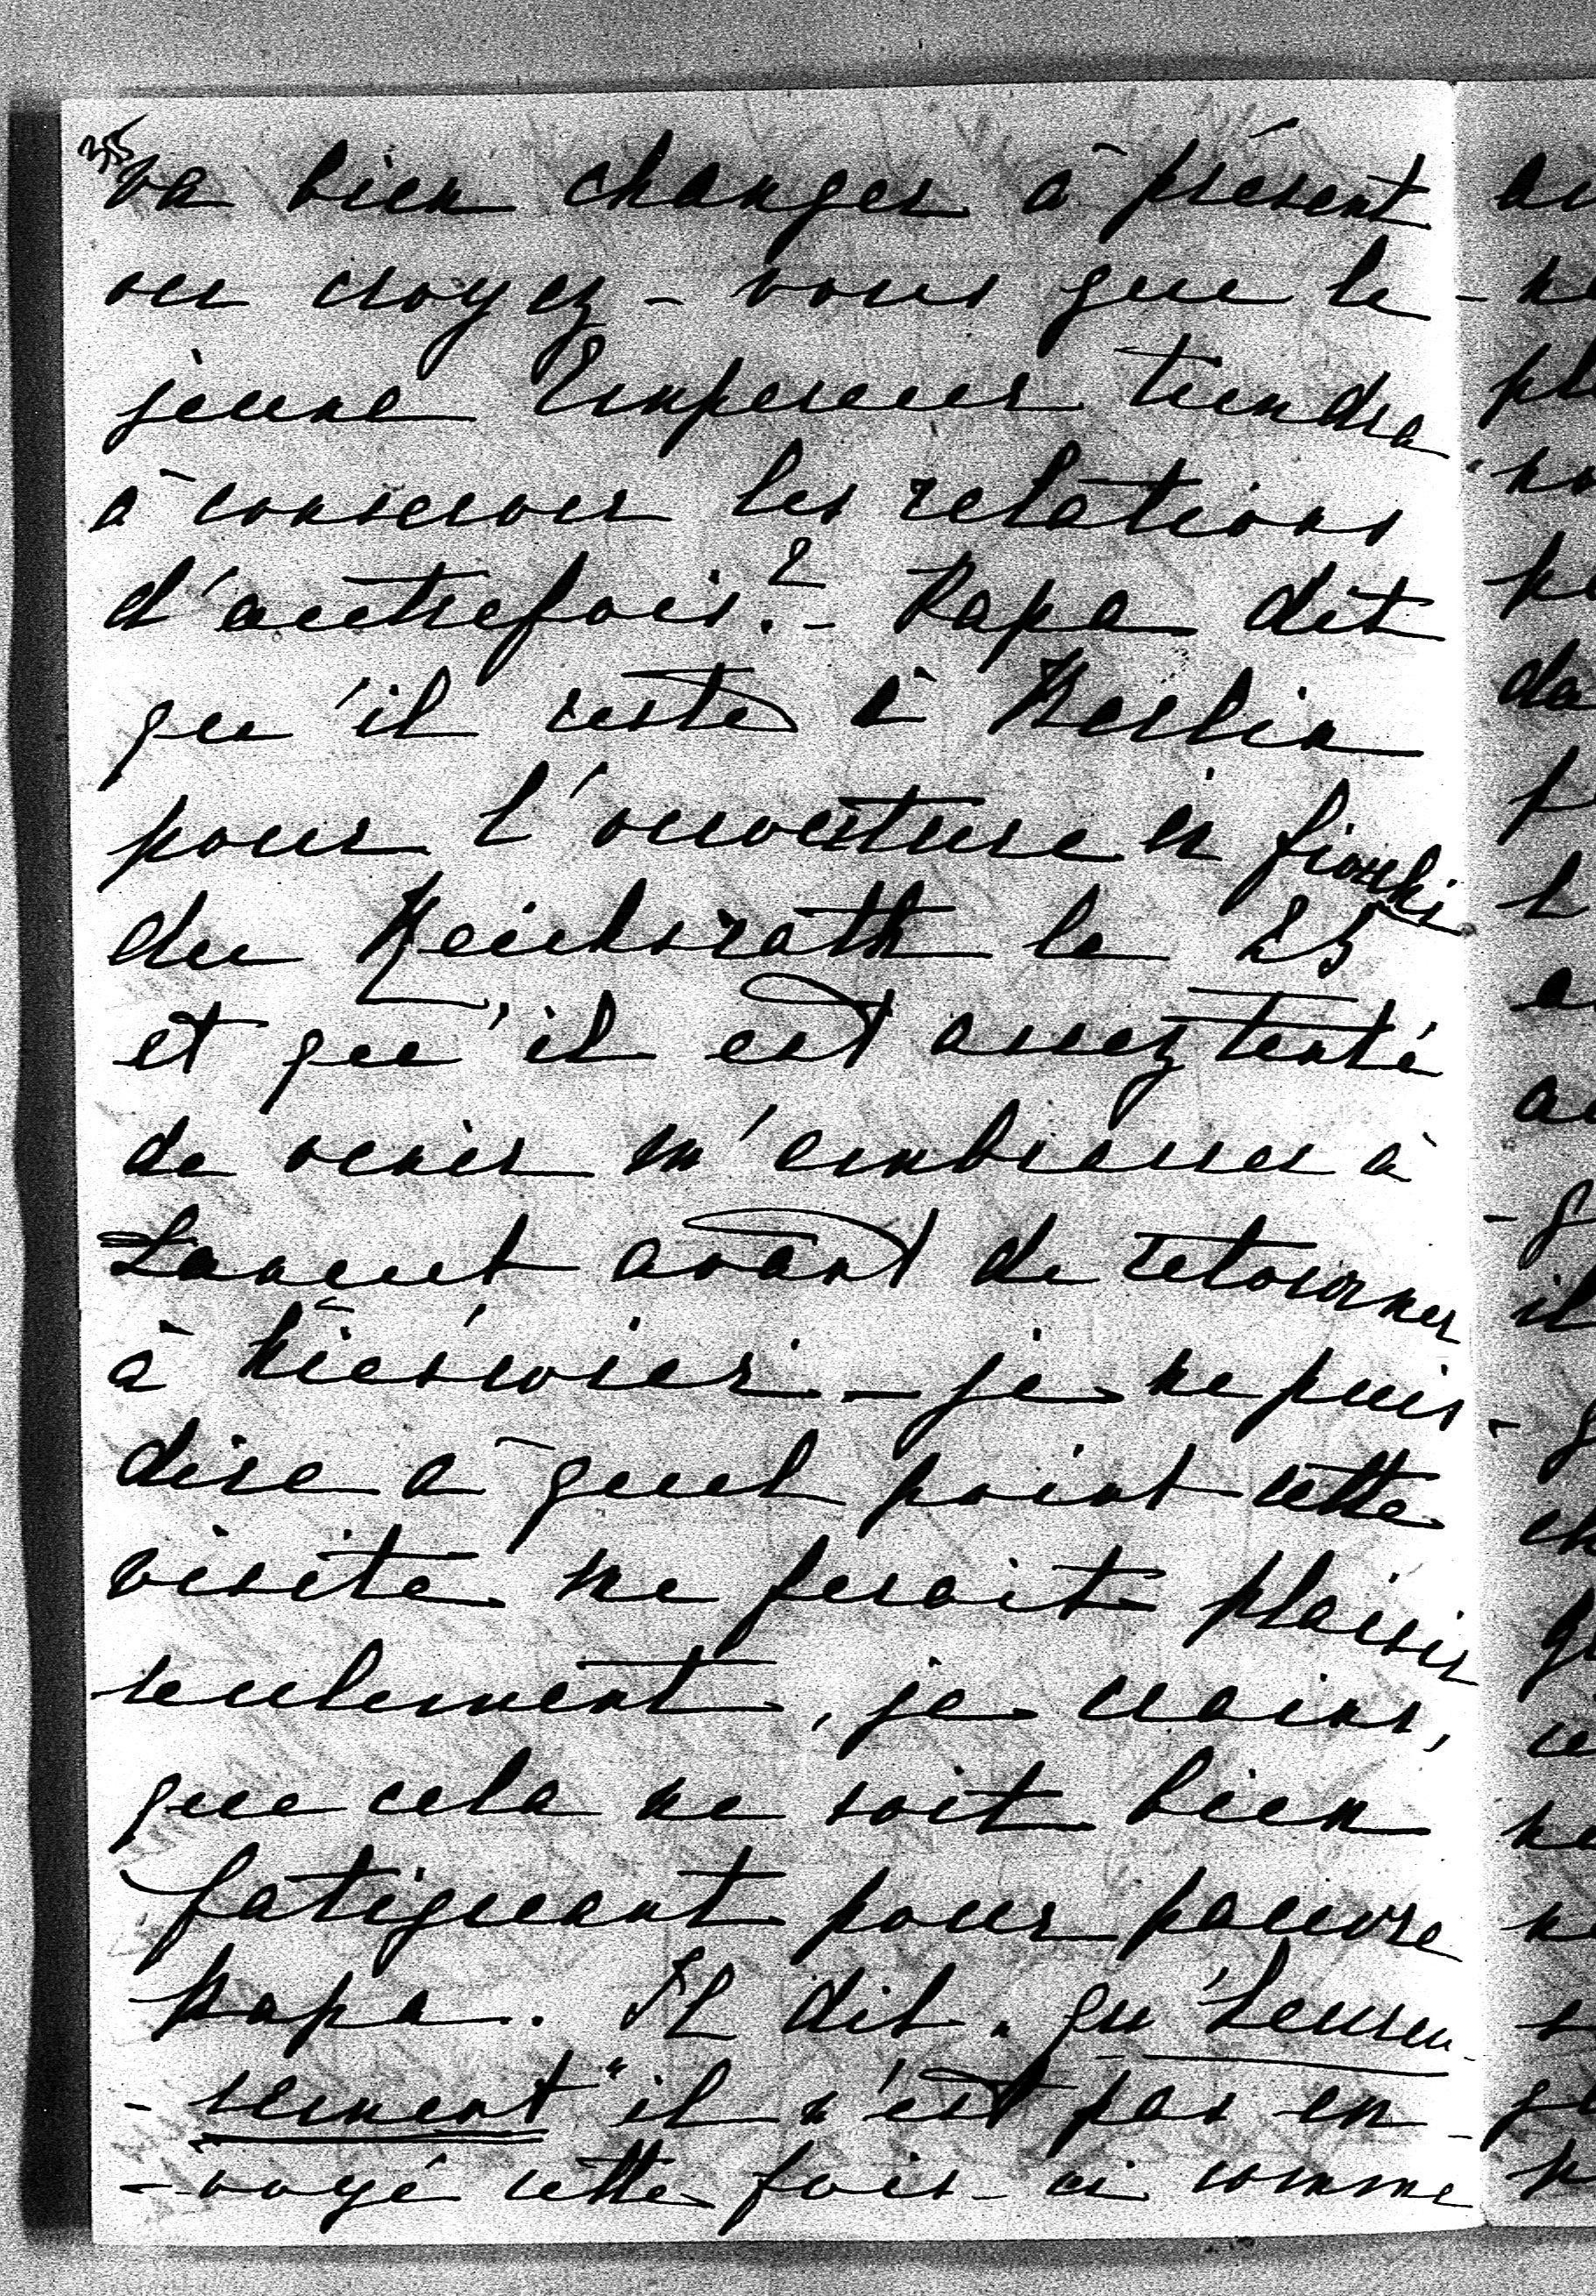 va bien changer à présent
ou croyez-vous que le
jeune Empereur tiendra
à conserver les relations
d'autrefois? - Papa dit
qu'il reste à Berlin
pour l'ouverture en fiocchi
du Reichsrath le 25
et qu'il est assez tenté
de venir m'embrasser à
Lancut avant de retourner
à Nieswiez - je ne puis
dire à quel point cette
visite me ferait plaisir
seulement, je crains,
que cela ne soit bien
fatiguant pour pauvre
Papa. Il dit „qu'heureu-
-sement" il n'est pas en-
-voyé cette fois-ci comme